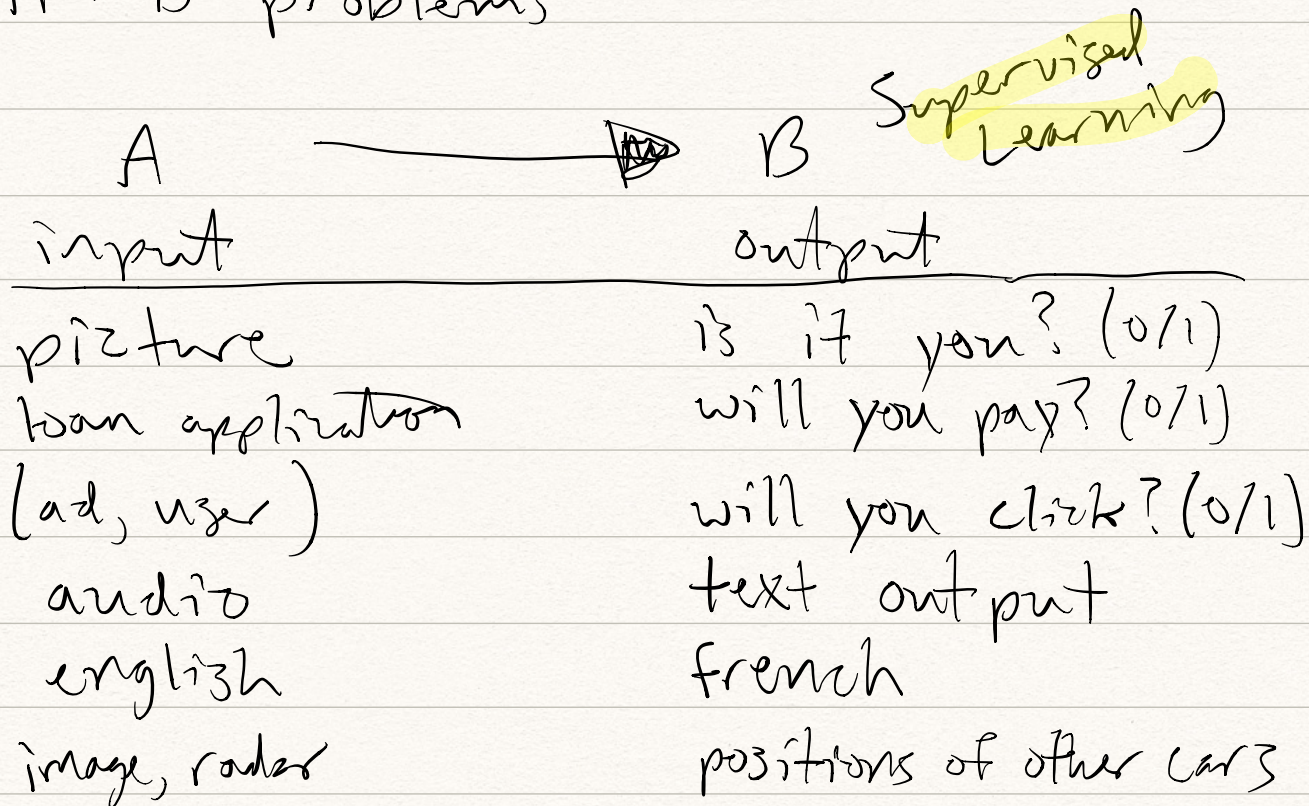 problems
Supervised
Learning
A B
input output
picture is it you? (0/1)
loan application will you pay? (0/1)
(ad, user) will you click? (0/1)
audio text output
english french
image, radar positions of other cars